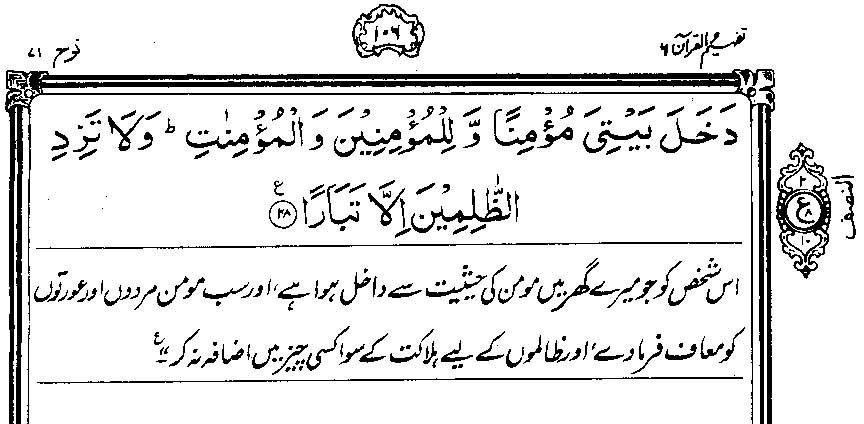 تفہیم القرآن ۶
۱۰۶
نوح ۷۱
دَخَلَ بَيْتِيَ مُؤْمِنًا وَّ لِلْمُؤْمِنِيْنَ وَ الْمُؤْمِنٰتِ ؕ وَلَا تَزِدِ
الظّٰلِمِيْنَ اِلَّا تَبَارًا ۲۸ ع
النصف
۲
ع
۸
۱۰
اس شخص کو جو میرے گھر میں مومن کی حیثیت سے داخل ہوا ہے، اور سب مومن مردوں اور عورتوں
کو معاف فرما دے، اور ظالموں کے لیے ہلاکت کے سوا کسی چیز میں اضافہ نہ کر ع